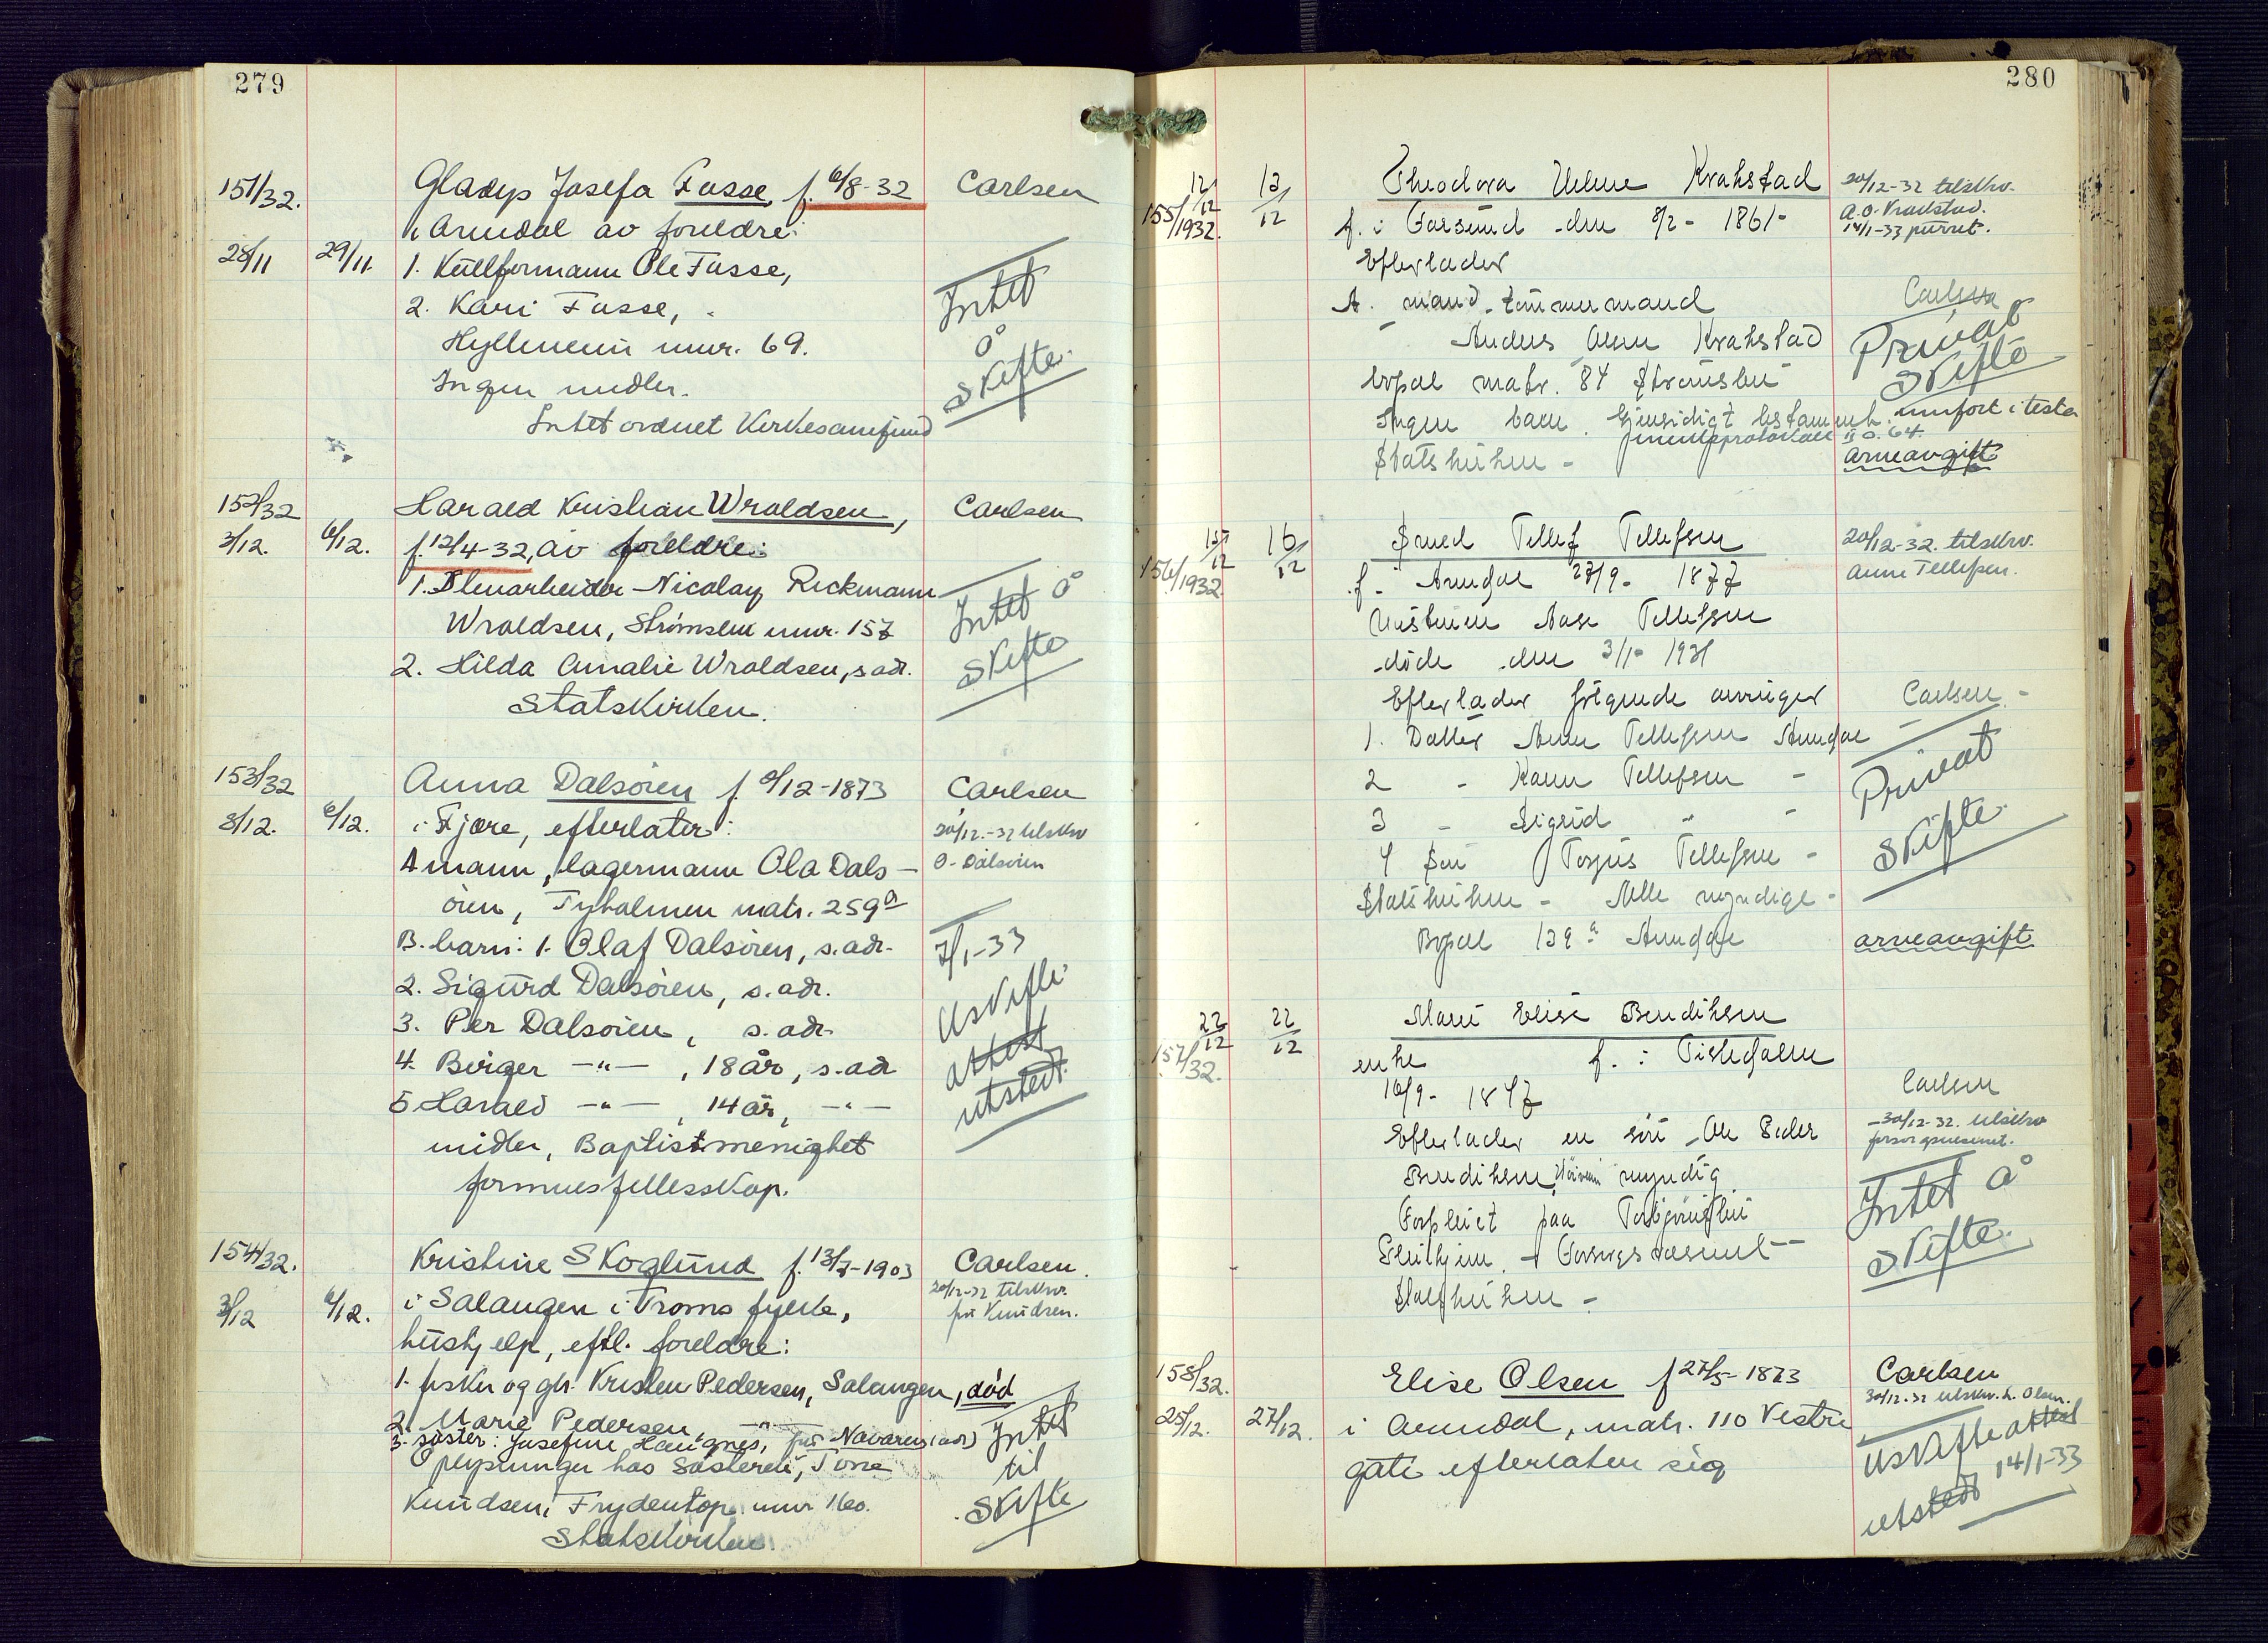 279
151/32.
Gladys Josefa Fosse, f. 6/8-32
Carlsen
i Arendal av foreldre:
28/11
29/11.
1. Kullformann Ole Fosse,
2. Kari Fosse,
Hylleveien mnr. 69.
Ingen midler.
Intet ordnet Kirkesamfund
Intet
å
skifte.
152/32
Harald Kristian Wroldsen,
Carlsen
3/12.
6/12.
f. 12/4-32, av foreldre:
1. Nicolay Rickmann
Wroldsen, Strømsbu mnr. 157
2. Hilda Amalie Wroldsen, s. adr.
Statskirken.
Intet å
skifte
153/32
Anna Dalsøien f. 9/12-1873
Carlsen
3/12.
6/12.
i Fjære, efterlater:
20/12.-32 tilskrv
O. Dalsøien
A mann, lagermann Ola Dals-
øien, Tyholmen matr. 259a
B. barn: 1. Olaf Dalsøien, s. adr.
2. Sigurd Dalsøien, s. adr.
3. Per Dalsøien, s. adr.
4. Birger —"—, 18 år, s. adr
5 Harald —"—, 14 år, —"—
midler, Baptistmenighet
formuesfellesskap.
7/1-33
Uskifte
attest
utstedt.
154/32.
Kristine Skoglund f. 13/7-1903
Carlsen.
20/12-32 tilskrv.
fru Knudsen.
3/12
6/12.
i Salangen i Troms fylke,
hushjelp, eftl. foreldre:
1. fisker og gbr. Kristen Pedersen, Salangen, død
2. Marie Pedersen, —"—
3. søster: Josefine Haugnes, (adr)
Oplysninger hos søsteren, Tone
Knudsen, Frydentop mnr 160.
Statskirken.
Intet
til
skifte
280
12/12
13/12
155/1932.
Theodora Helene Krahstad
20/12-32 tilskrv.
A.O. Krahstad.
14/1-33 purret.
f. i Farsund den 8/2- 1861-
Efterlader
A. mand tømmermand
Anders Olsen Krahstad
bopæl matr. 84 Strømsbu
Ingen barn. Gjensidigt testament.
Statskirken -
Carlsen
Privat
skifte
innført i testa
mentsprotokoll II o. 64.
arveavgift
15/12
16/12
156/1932.
Smed Tellef Tellefsen
20/12-32. tilskrv.
Anne Tellefsen.
f. i Arendal 27/9- 1877
Hustruen Aase Tellefsen
døde den 3/1- 1931
Efterlader følgende arvinger
Carlsen -
1. Datter Anne Tellefsen Arendal
2 - Karen Tellefsen -
3 - Sigrid " -
4 Søn Torjus Tellefsen -
Statskirken - Alle myndige -
Bopæl 139a Arendal
Privat
skifte.
arveavgift
22/12
22/12
157/32.
Marie Elise Bendiksen
enke f. i Fiskedalen
16/9- 1847
Carlsen
30/12-32. tilskrv
forsorgsvesenet.
Efterlader en søn Ole Peder
Bendiksen, myndig
Forpleiet paa Torbjørnsbu
Pleiehjem. - Forsorgsvæsenet -
Statskirken -
Intet å
skifte.
158/32.
Elise Olsen f 27/5-1873
Carlsen
30/12-32 tilskrv. h. Olsen.
25/12.
27/12.
i Arendal, matr. 110 Vestre
gate efterlater sig
Uskifteattest
utstedt 14/1-33